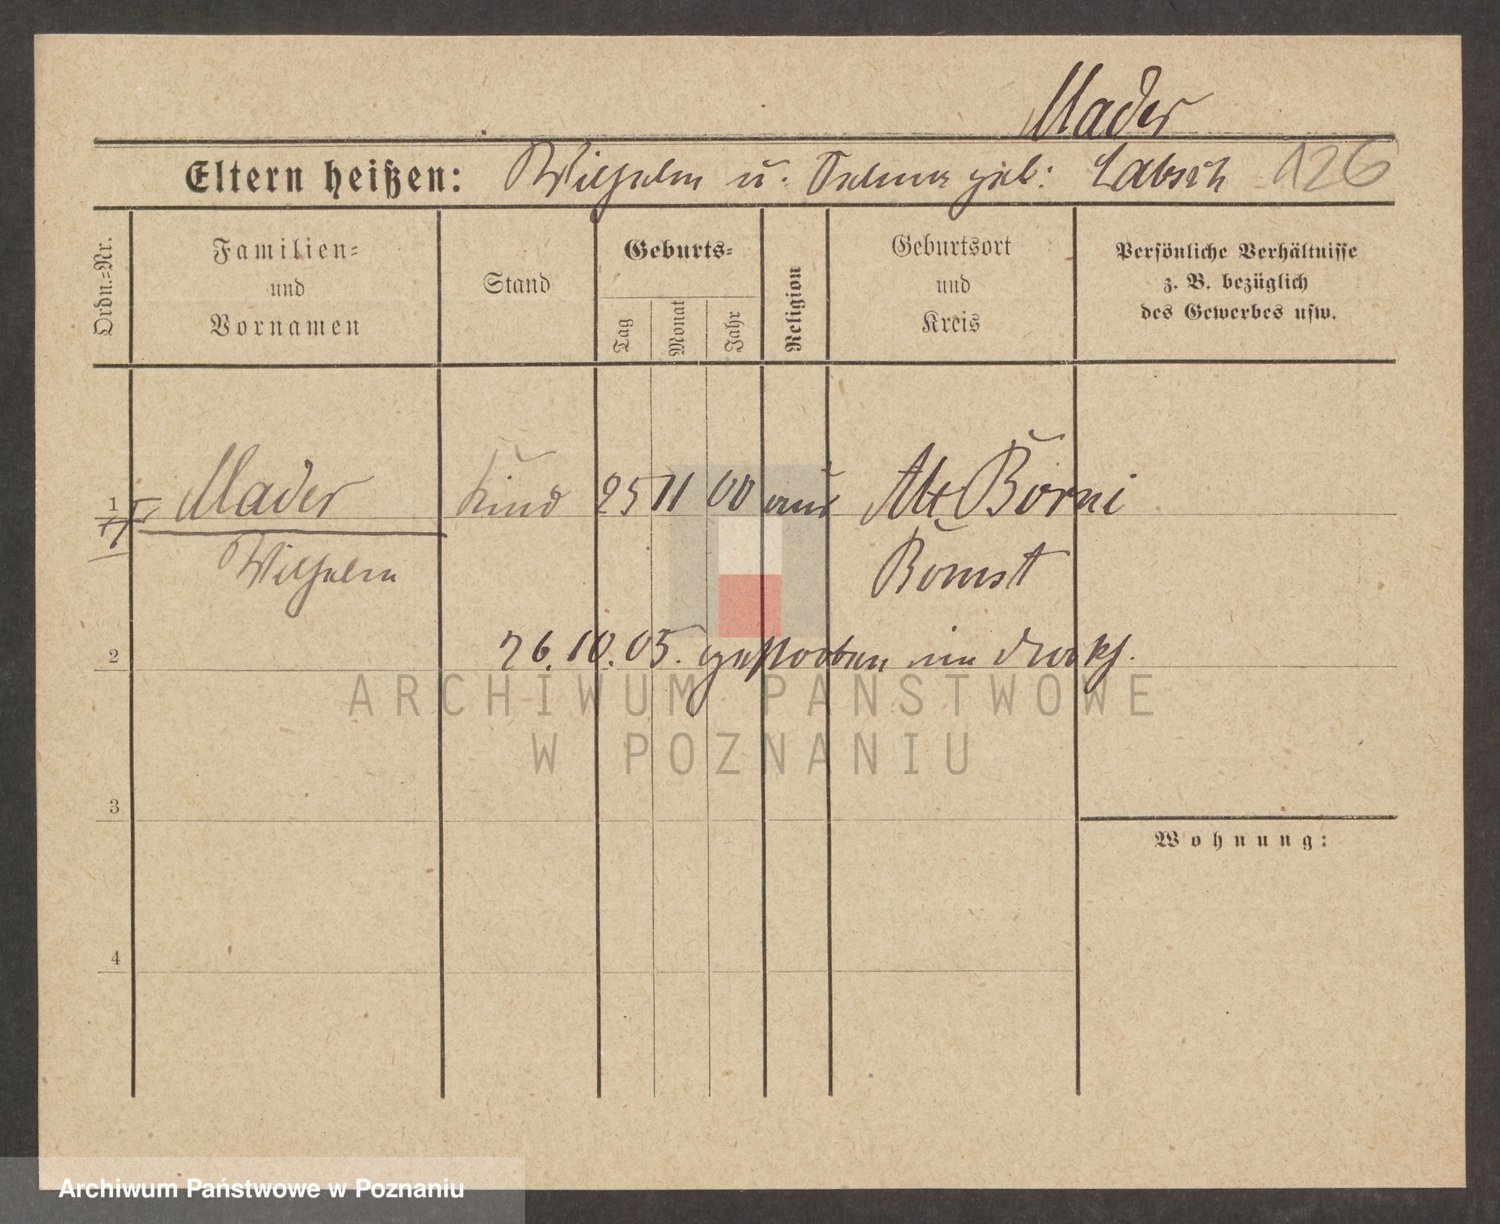 Mader
Eltern heißen: Wilhelm u. Selma geb: Labsch 126
Ordn.-Nr.
Familien-
und
Vornamen
Stand
Geburts-
Tag
Monat
Jahr
Religion
Geburtsort
und
Kreis
Persönliche Verhältnisse
z. B. bezüglich
des Gewerbes usw.
1 Mader Kind 25 11 00 Alt Borui
Wilhelm Bomst
2 26.10.05. gestorben im
ARCHIWUM PAŃSTWOWE
W POZNANIU
3
Wohnung:
4
Archiwum Państwowe w Poznaniu